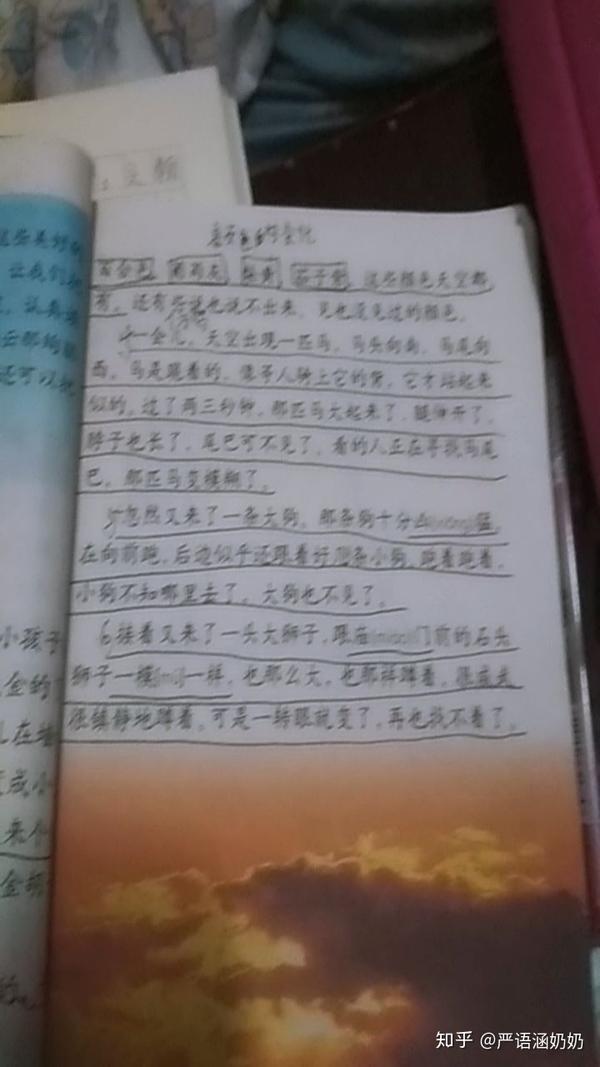 让我们
还可以把
小孩子
金的
来个
葡萄灰、梨黄、茄子紫，这些颜色天空都
有，还有些说也说不出来、见也没见过的颜色。
一会儿，天空出现一匹马，马头向南，马尾向
西。马是跪着的，像等人骑上它的背，它才站起来
似的。过了两三秒钟，那匹马大起来了，腿伸开了，
脖子也长了，尾巴可不见了。看的人正在寻找马尾
巴，那匹马变模糊了。
忽然又来了一条大狗。那条狗十分凶(xiōng)猛，
在向前跑，后边似乎还跟着好几条小狗。跑着跑着，
小狗不知哪里去了，大狗也不见了。
6接着又来了一头大狮子，跟庙(miào)门前的石头
狮子一模(mú)一样，也那么大，也那样蹲着，很威武
很镇静地蹲着。可是一转眼就变了，再也找不着了。
知乎 @严语涵奶奶